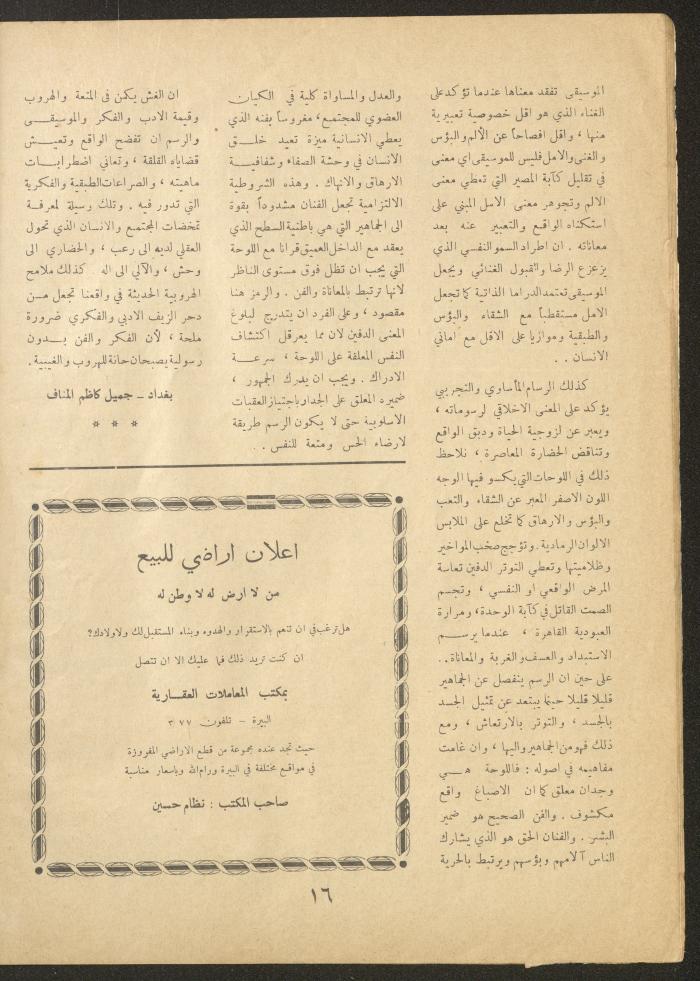 الموسيقى تفقد معناها عندما تؤكد على
الغناء الذي هو اقل خصوصية تعبيرية
منها ، واقل افصاحاً عن الألم والبؤس
والغنى والامل فليس للموسيقى اي معنى
في تقليل كآبة المصير التي تعطي معنى
الالم وتجوهر معنى الامل المبني على
استكناه الواقع والتعبير عنه بعد
معاناته . ان اطراد السمو النفسي الذي
يزعزع الرضا والقبول الغنائي ويجعل
الموسيقى تعتمد الدراما الذاتية كما تجعل
الامل مستقطباً مع الشقاء والبؤس
والطبقية وموازيا على الاقل مع اماني
الانسان . .
كذلك الرسام المأساوي والتجريبي
يؤكد على المعنى الاخلاقي لرسوماته ،
ويعبر عن لزوجية الحياة ودبق الواقع
وتناقض الحضارة المعاصرة ، نلاحظ
ذلك في اللوحات التي يكسو فيها الوجه
اللون الاصفر المعبر عن الشقاء والتعب
والبؤس والارهاق كما تخلع على الملابس
الالوان الرمادية . وتؤجج صخب المواخير
وظلاميتها وتعطي التوتر الدفين تعاسة
المرض الواقعي او النفسي ، وتجسم
الصمت القاتل في كآبة الوحدة ، ومرارة
العبودية القاهرة ، عندما يرسم
الاستبداد والعسف والغربة والمعاناة . .
على حين ان الرسم ينفصل عن الجماهير
قليلا قليلا حينما يبتعد عن تمثيل الجسد
بالجسد ، والتوتر بالارتعاش ، ومع
ذلك فهو من الجماهير واليها ، وان غامت
مفاهيمه في اصوله : فاللوحة هي
وجدان معلق كما ان الاصباغ واقع
مكشوف . والفن الصحيح هو ضمير
البشر . والفنان الحق هو الذي يشارك
الناس آلامهم وبؤسهم ويرتبط بالحرية
والعدل والمساواة كلية في الكيان
العضوي للمجتمع ، مغروساً بفنه الذي
يعطي الانسانية ميزة تعيد خلق
الانسان في وحشة الصفاء وشفافية
الارهاق والانهاك . وهذه الشروطية
الالتزامية تجعل الفنان مشدوداً بقوة
الى الجماهير التي هي باطنية السطح الذي
يعقد مع الداخل العميق قرانا مع اللوحة
التي يجب ان تظل فوق مستوى الناظر
لانها ترتبط بالمعاناة والفن . والرمز هنا
مقصود ، وعلى الفرد ان يتدرج لبلوغ
المعنى الدفين لان مما يعرقل اكتشاف
النفس المعلقة على اللوحة ، سرعة
الادراك . ويجب ان يدرك الجمهور ،
ضميره المعلق على الجدار باجتياز العقبات
الاسلوبية حتى لا يكون الرسم طريقة
لارضاء الحس ومتعة للنفس . .
ان الغش يكمن في المتعة والهروب
وقيمة الادب والفكر والموسيقى
والرسم ان تفضح الواقع وتعيش
قضاياه القلقة ، وتعاني اضطرابات
ماهيته ، والصراعات الطبقية والفكرية
التي تدور فيه . وتلك وسيلة لمعرفة
تمخضات المجتمع والانسان الذي تحول
العقلي لديه الى رعب ، والحضاري الى
وحش ، والآلي الى اله كذلك ملامح
الهروبية الحديثة في واقعنا تجعل من
دحر الزيف الادبي والفكري ضرورة
ملحة ، لأن الفكر والفن بدون
رسولية يصبحان حانة للهروب والغيبية .
بغداد ـ جميل كاظم المناف
* * *
اعلان اراضي للبيع
من لا ارض له لا وطن له
هل ترغب في ان تنعم بالاستقرار والهدوء وبناء المستقبل لك ولاولادك ؟
ان كنت تريد ذلك فما عليك الا ان تتصل
بمكتب المعاملات العقارية
البيرة – تلفون ٣٠٧٧
حيث تجد عنده مجموعة من قطع الاراضي المفروزة
في مواقع مختلفة في البيرة ورام الله وباسعار مناسبة
صاحب المكتب : نظام حسين
١٦